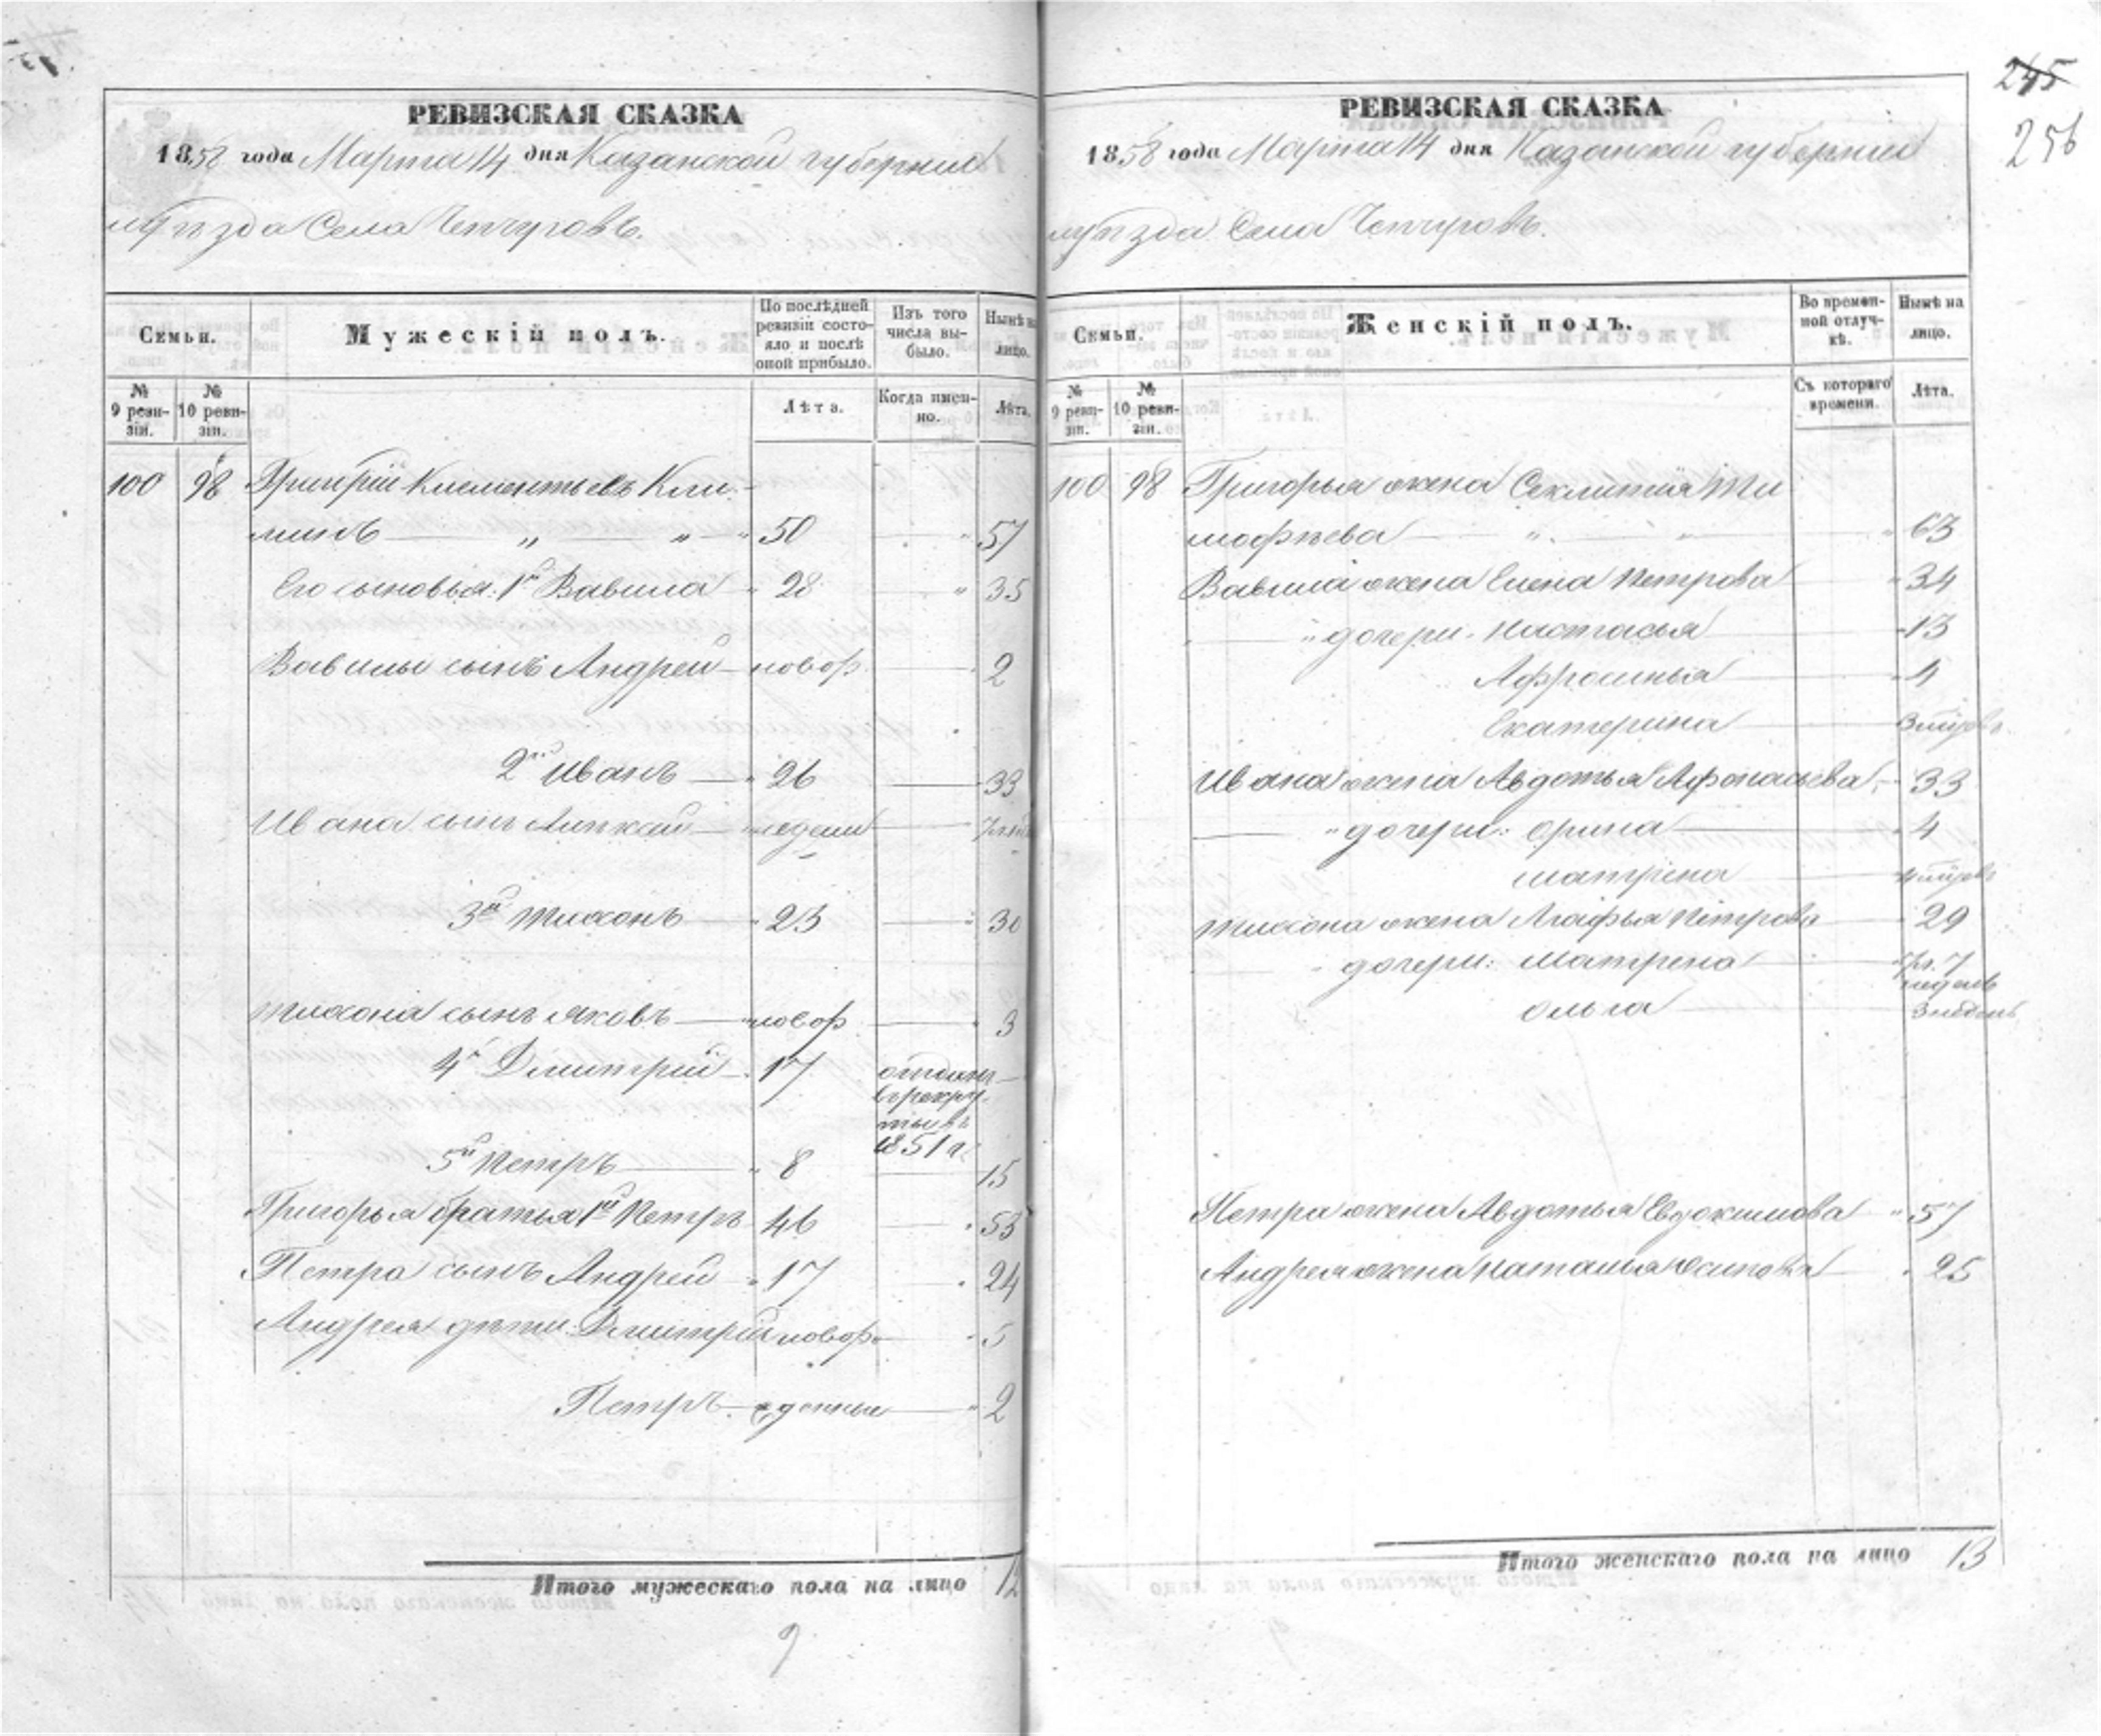 РЕВИЗСКАЯ СКАЗКА
1858 года Марта 14 дня Казанской губернии
уѣзда Села Чепчуговъ.
Семьи.
Мужескій полъ.
По послѣдней ревизіи состояло и послѣ оной прибыло.
Изъ того числа выбыло.
Нынѣ на лицо.
№ 9 ревизіи.
№ 10 ревизіи.
Лѣта.
Когда именно.
Лѣта.
100 98 Григорій Клементьевъ Кли-
минъ „ „ 50 57
Его сыновья: 1й Вавила 28 35
Вавилы сынъ Андрей новор. 2
2й Иванъ 26 33
Ивана сынъ недели
3й Тихонъ 23 30
Тихона сынъ Яковъ новор. 3
4й Дмитрій 17 отданъ
въ рекру-
ты въ
1851 г.
5й Петръ 8 15
Григорья братья 1й Петръ 46 53
Петра сынъ Андрей 17 24
Андрея дѣти: Дмитрій новор. 5
Петръ 2
Итого мужескаго пола на лицо 12
9
245
256
РЕВИЗСКАЯ СКАЗКА
1858 года Марта 14 дня Казанской губерніи
уѣзда Села Чепчуговъ.
Семьи.
Женскій полъ.
Во временной отлучкѣ.
Нынѣ на лицо.
№ 9 ревизіи.
№ 10 ревизіи.
Съ котораго времени.
Лѣта.
100 98 Григорья жена Секлитія Ти
мофѣева 63
Вавила жена Елена Петрова 34
дочери: Настасья 13
Афросинья 4
Екатерина
Ивана жена Авдотья Афонасьева 33
дочери: Орина 4
Матрена
Тихона жена Агафья Петрова 29
дочери: Матрена 7
недель
Ольга 3 недель
Петра жена Авдотья Евдокимова 57
Андрея жена Наталья Осипова 25
Итого женскаго пола на лицо 13